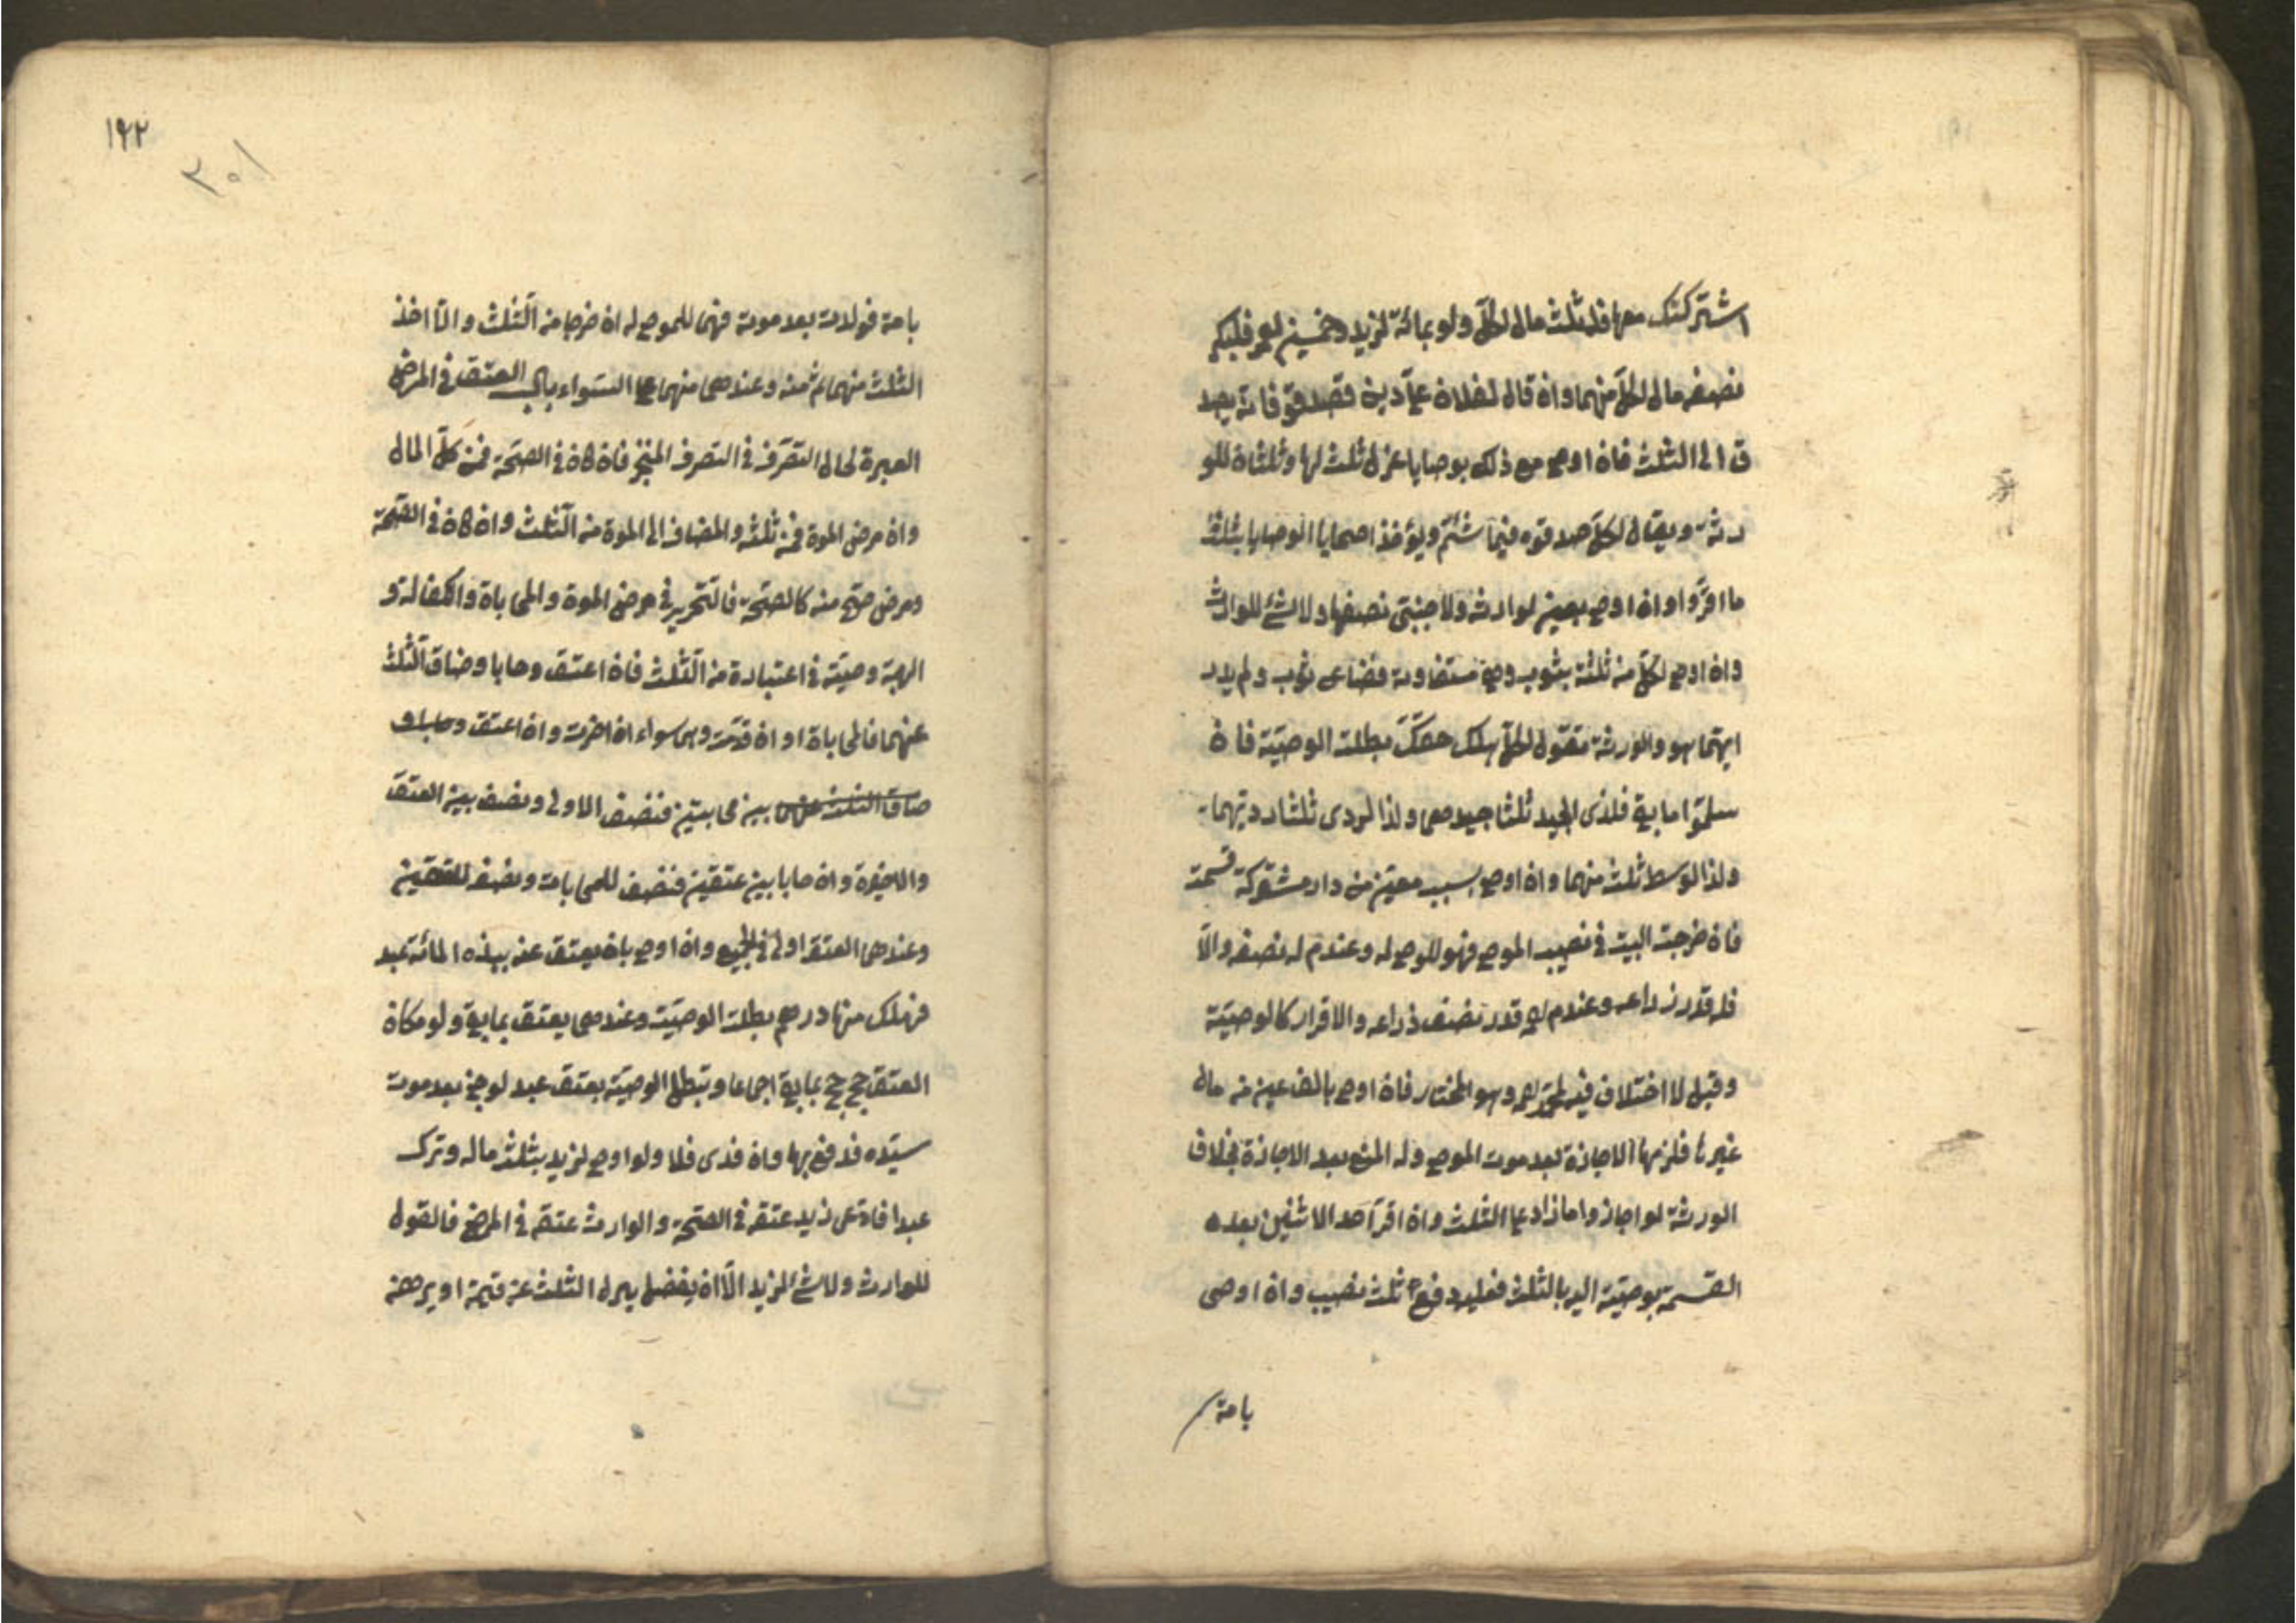 اشتركتك معها فله ثلث مال لكل ولو بمائة لزيد وخمسين لعمرو فلبكر
نصف مال لكل منهما وان قال لفلان على دين فصدقوه فانه يصد
ق الى الثلث فان اوصى مع ذلك بوصايا عزل ثلث لها وثلثان للو
رثة ويقال لكل صدقوه فيما شئتم ويؤخذ اصحابا الوصايا بثلث
ما اقروا وان اوصى بعين لوارثه ولاجنبى نصفها ولا شئ للوارث
وان اوصى لكل من ثلثة بثوب وهى متفاوتة فضاع ثوب ولم يدر
ايهما هو والورثة تقول لكل هلك حقك بطلت الوصية فان
سلموا ما بقى فلذى الجيد ثلثا جيدهما ولذا لردى ثلثا رديهما
ولذا لوسط ثلث منهما وان اوصى ببيت معين من دار مشتركة قسمت
فان خرجت البيت فى نصيب الموصى فهو للموصى له وعند م له نصفه والا
فله قدر ذراعه وعند م له قدر نصف ذراعه والاقرار كالوصية
وقيل لا اختلاف فيه لمحمد وهو المختار فان اوصى بالف عين من مال
غيره فلربها الاجازة بعد موت الموصى وله المنع بعد الاجازة بخلاف
الورثة لو اجازوا ما زاد على الثلث وان اقر احد الاثنين بعده
القسمة بوصية اليه بالثلث فعليه دفع ثلث نصيب وان اوصى
بامة
١٩٢
٣٠١
بامة فولدت بعد موته فهما للموصى له ان خرجا من الثلث والا اخذ
الثلث منهما ثم منه وعندهما منهما على السواء باب العتق فى المرض
العبرة لحال التصرف فى التصرف المنجز فان كان فى الصحة فمن كل المال
وان مرض الموة فمن ثلثه والمضاف الى الموة من الثلث وان كان فى الصحة
ومرض صح منه كالصحة فالتحرير فى مرض الموة والمحاباة والكفالة و
الهبة وصية فى اعتباره من الثلث فان اعتق وحابا وضاق الثلث
عنهما فالمحاباة اوان قدمت وهى سواء ان اخرت وان اعتق وحابا و
ضاق الثلث عنهما بين محابيتين فنصف الاولى ونصف بين العتق
والاخيرة وان حابا بين عتقين فنصف للمحابات ونصف للعتقين
وعندهما العتق اولى فى الجميع وان اوصى بان يعتق عنه بهذه المائة عبد
فهلك منها درهم بطلت الوصية وعندهما يعتق بما بقى ولو مكان
العتق حج حج بما بقى اجماعا وتبطل الوصية بعتق عبد لو جنى بعد موت
سيده فدفع بها وان فدى فلا ولو اوصى لزيد بثلث ماله وترك
عبدا فادعى زيد عتقه فى الصحة والوارث عتقه فى المرض فالقول
للوارث ولا شئ لزيد الا ان يفضل الثلث عن قيمة او يبرهن